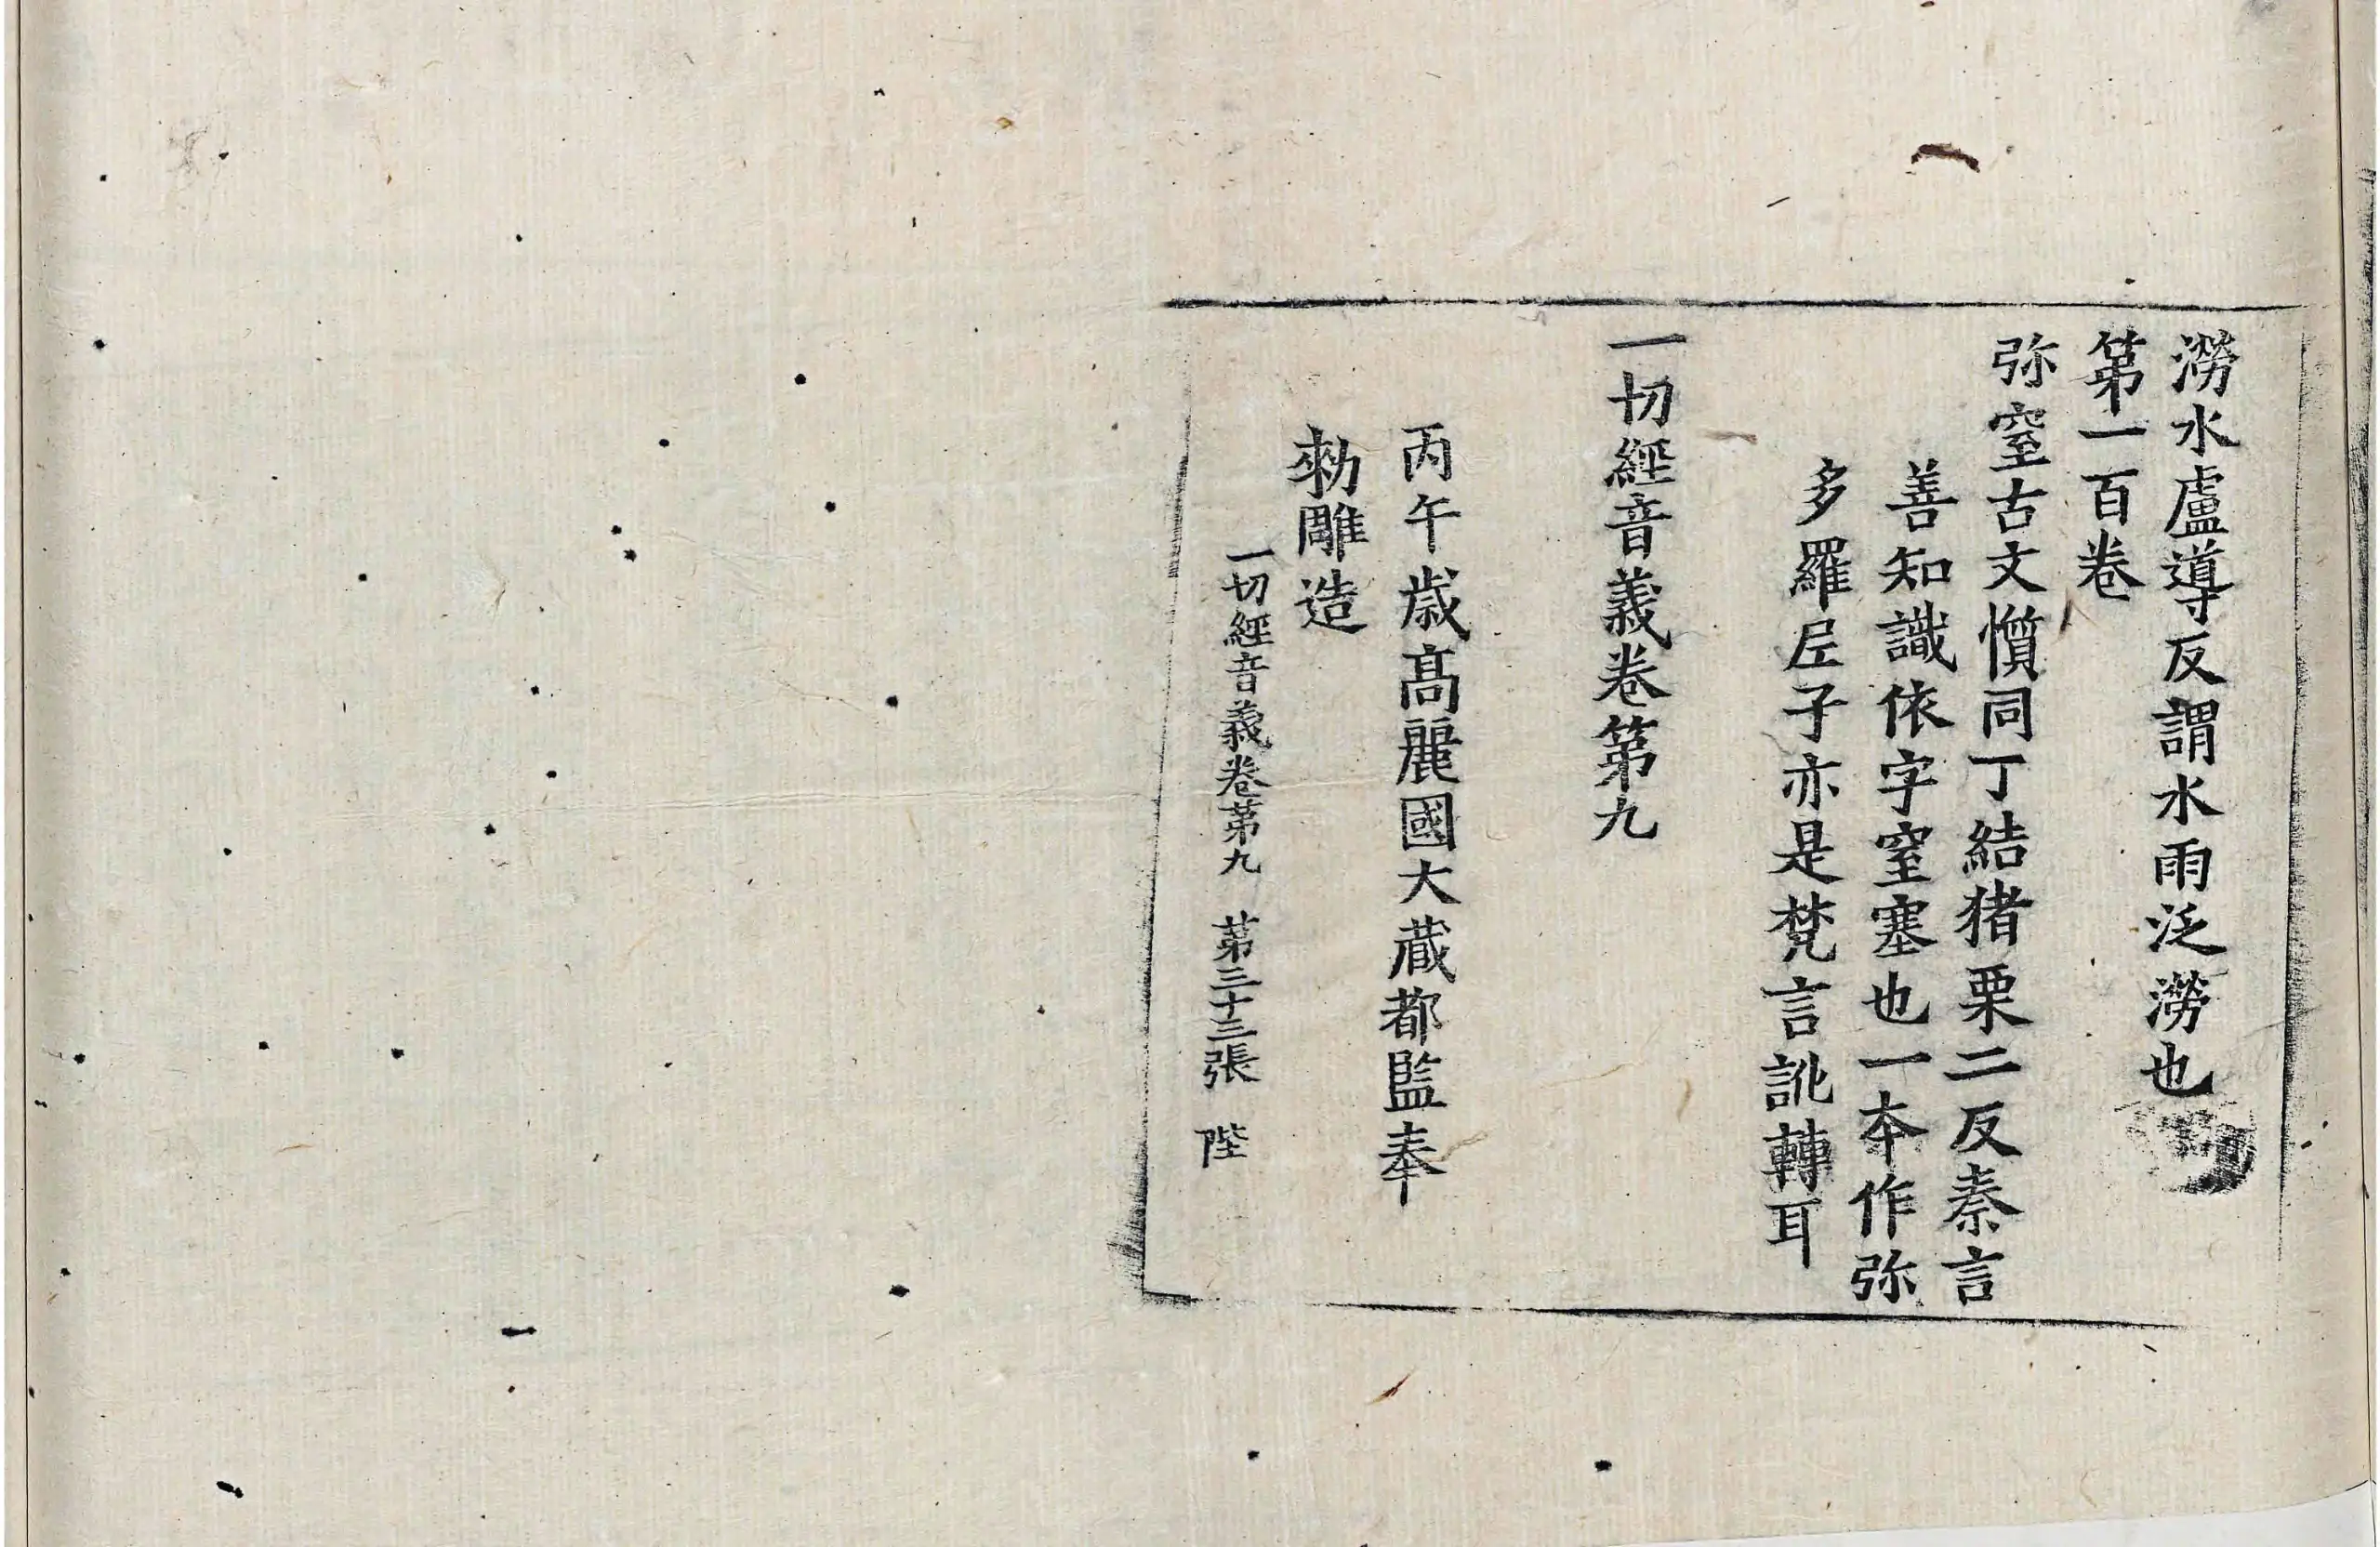 澇水盧導反謂水雨泛澇也
第一百卷
弥窒古文懫同丁結猪栗二反秦言
善知識依字窒塞也一本作弥
多羅尼子亦是梵言訛轉耳
一切經音義卷第九
丙午歲高麗國大藏都監奉
勅雕造
一切經音義卷第九 第三十三張 陛